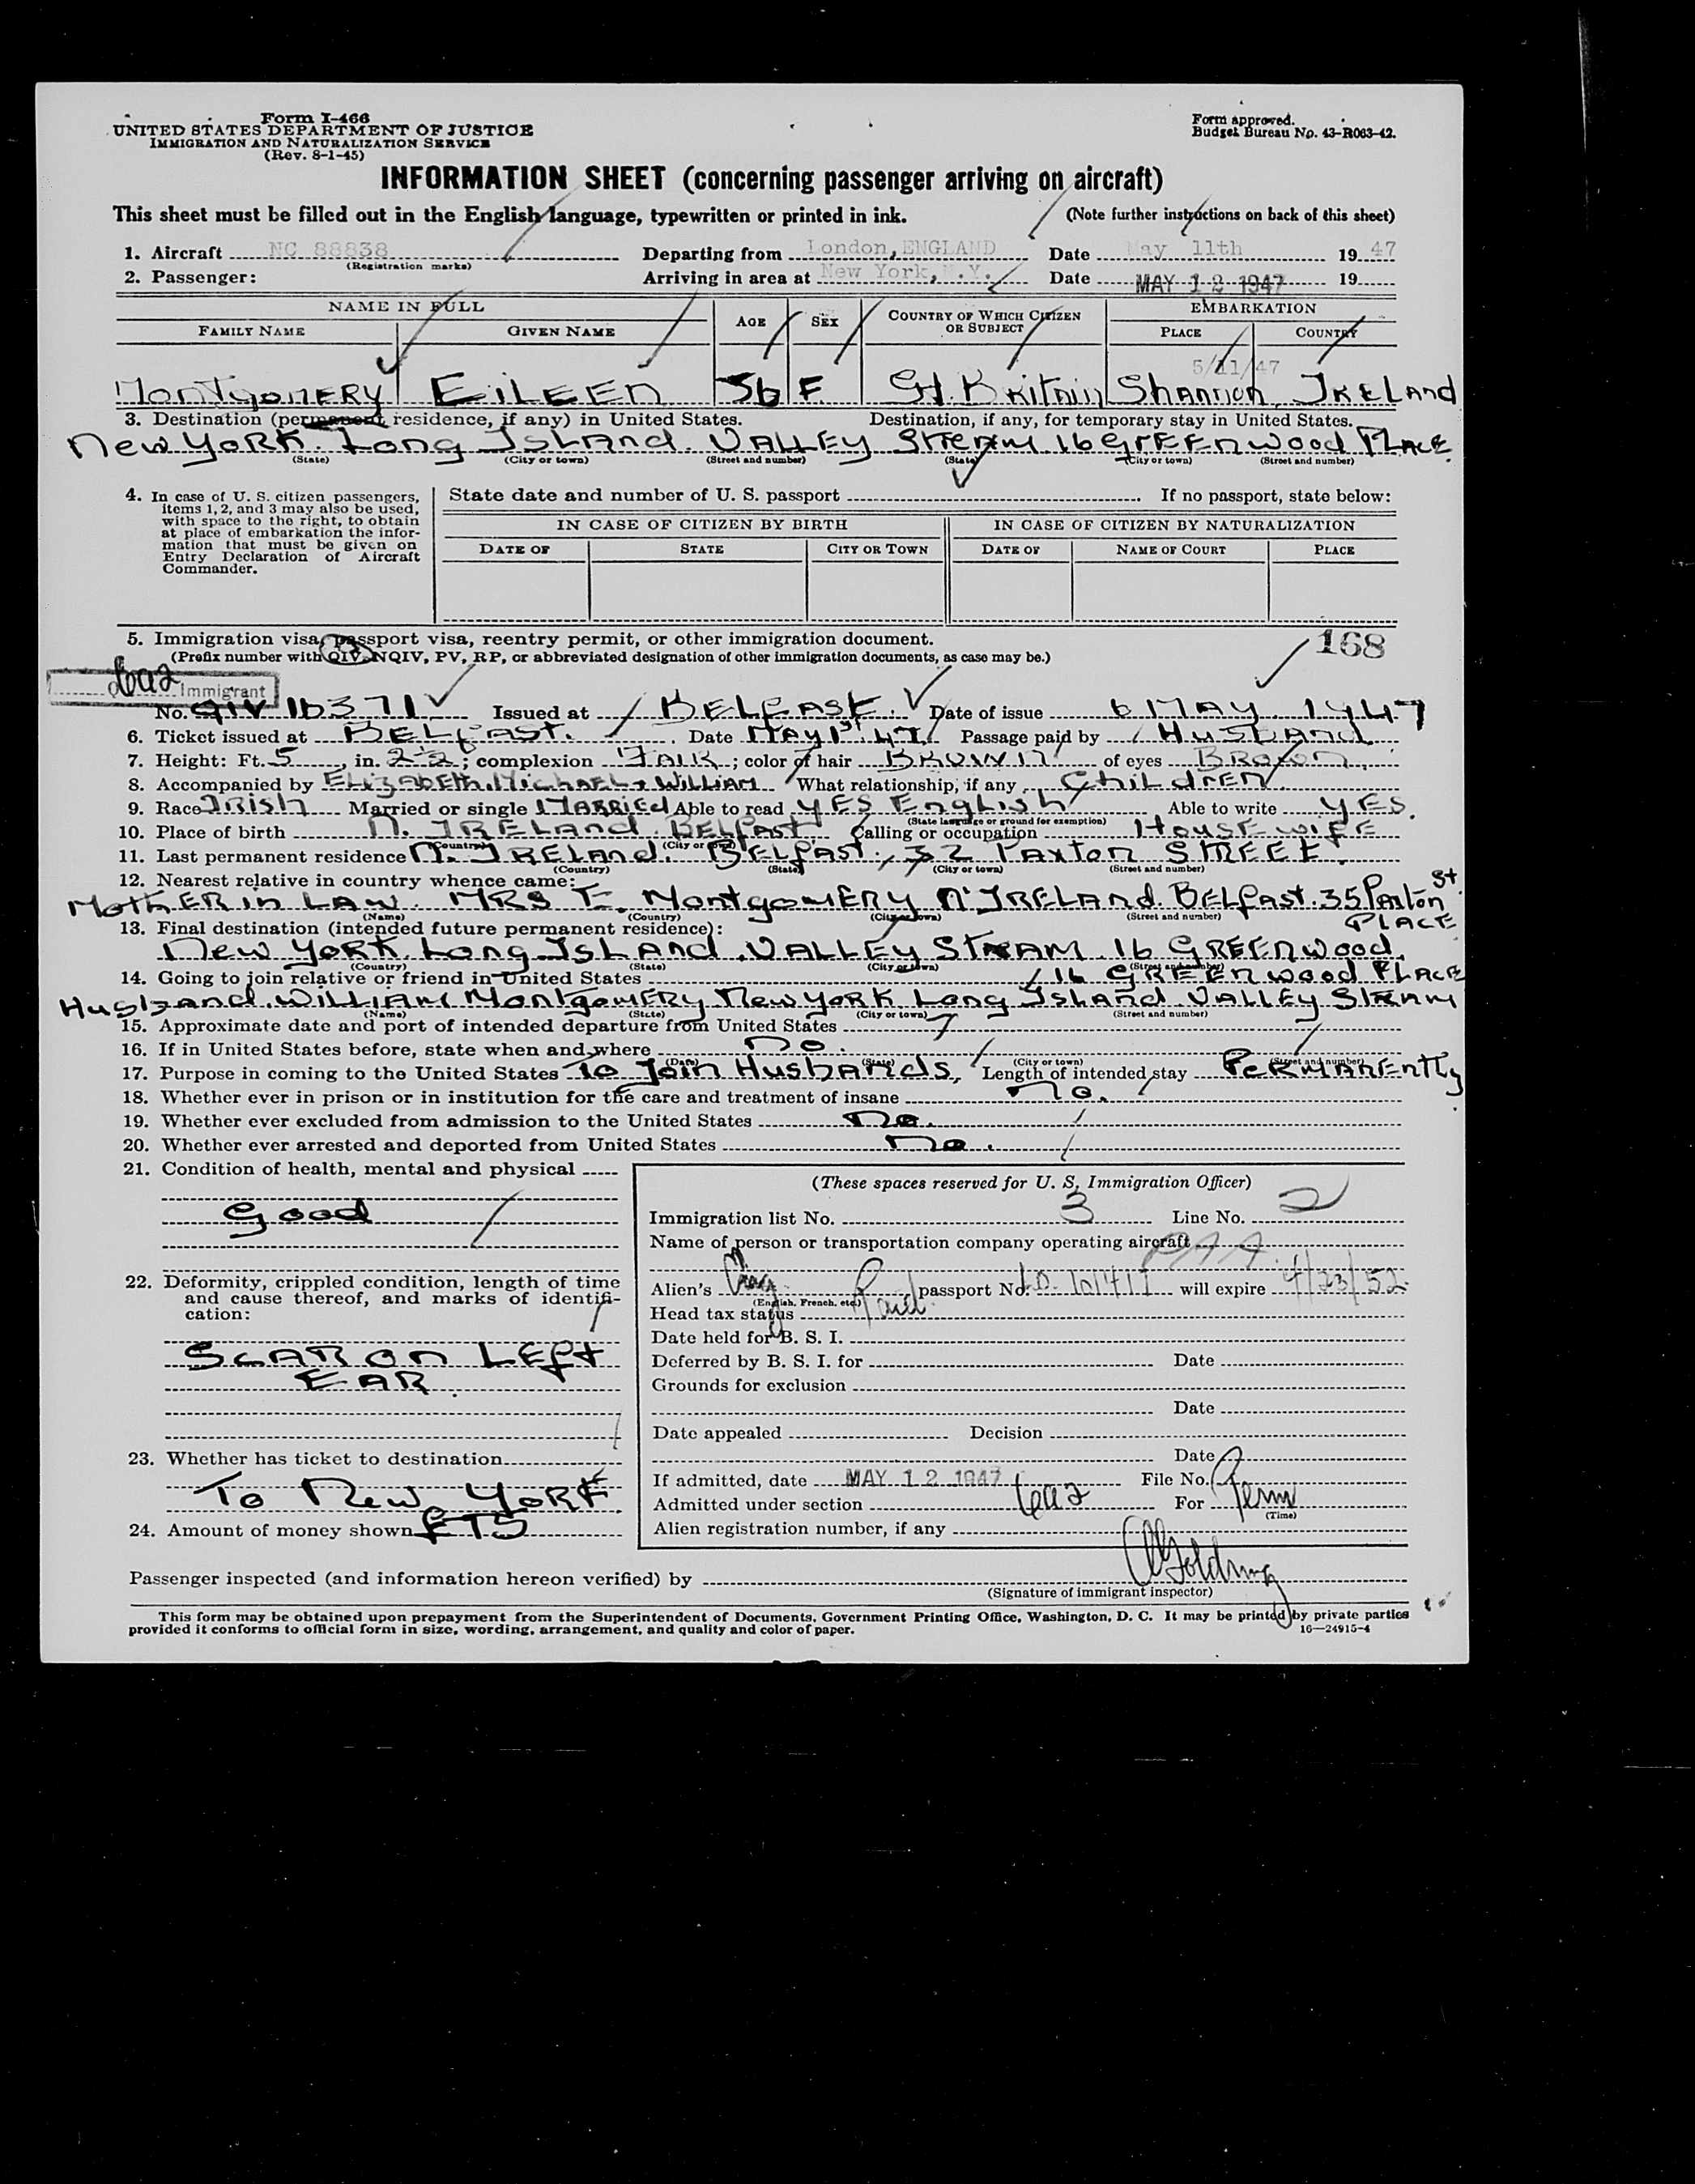 Form I-466
UNITED STATES DEPARTMENT OF JUSTICE
IMMIGRATION AND NATURALIZATION SERVICE
(Rev. 8-1-45)
Form approved.
Budget Bureau No. 43-R063-42.
INFORMATION SHEET (concerning passenger arriving on aircraft)
This sheet must be filled out in the English language, typewritten or printed in ink. (Note further instructions on back of this sheet)
1. Aircraft NC 88838 Departing from London, ENGLAND Date May 11th 19 47
(Registration marks)
2. Passenger: Arriving in area at New York, N.Y. Date MAY 12 1947 19
NAME IN FULL AGE SEX COUNTRY OF WHICH CITIZEN OR SUBJECT EMBARKATION
FAMILY NAME GIVEN NAME PLACE COUNTRY
5/11/47
MONTGOMERY EILEEN 36 F Gt. BRITAIN SHANNON IRELAND
3. Destination (permanent residence, if any) in United States. Destination, if any, for temporary stay in United States.
NEW YORK. LONG ISLAND. VALLEY STREAM 16 GREENWOOD PLACE
(State) (City or town) (Street and number) (State) (City or town) (Street and number)
4. In case of U. S. citizen passengers, items 1, 2, and 3 may also be used, with space to the right, to obtain at place of embarkation the information that must be given on Entry Declaration of Aircraft Commander.
State date and number of U. S. passport If no passport, state below:
IN CASE OF CITIZEN BY BIRTH IN CASE OF CITIZEN BY NATURALIZATION
DATE OF STATE CITY OR TOWN DATE OF NAME OF COURT PLACE
5. Immigration visa, passport visa, reentry permit, or other immigration document. 168
(Prefix number with QIV, NQIV, PV, RP, or abbreviated designation of other immigration documents, as case may be.)
6a2 Immigrant
No. QIV 16371 Issued at BELFAST. Date of issue 6 MAY. 1947
6. Ticket issued at BELFAST. Date MAY 1st 47 Passage paid by HUSBAND
7. Height: Ft. 5 in. 2½; complexion FAIR; color of hair BROWN of eyes BROWN
8. Accompanied by ELIZABETH. MICHAEL & WILLIAM What relationship, if any CHILDREN
9. Race IRISH Married or single MARRIED Able to read YES ENGLISH Able to write YES.
(State language or ground for exemption)
10. Place of birth N. IRELAND. BELFAST Calling or occupation HOUSEWIFE
(Country) (City or town)
11. Last permanent residence N. IRELAND. BELFAST. 32 PAXTON STREET.
(Country) (State) (City or town) (Street and number)
12. Nearest relative in country whence came:
MOTHER IN LAW. MRS E. MONTGOMERY N' IRELAND. BELFAST. 35 PAXTON St.
(Name) (Country) (City or town) (Street and number)
13. Final destination (intended future permanent residence): PLACE
NEW YORK. LONG ISLAND. VALLEY STREAM. 16 GREENWOOD.
(Country) (State) (City or town) (Street and number)
14. Going to join relative or friend in United States 16 GREENWOOD PLACE
HUSBAND. WILLIAM MONTGOMERY NEW YORK LONG ISLAND. VALLEY STREAM
(Name) (State) (City or town) (Street and number)
15. Approximate date and port of intended departure from United States
16. If in United States before, state when and where NO.
(Date) (State) (City or town) (Street and number)
17. Purpose in coming to the United States TO JOIN HUSBANDS, Length of intended stay PERMANENTLY.
18. Whether ever in prison or in institution for the care and treatment of insane NO.
19. Whether ever excluded from admission to the United States NO.
20. Whether ever arrested and deported from United States NO.
21. Condition of health, mental and physical
GOOD
22. Deformity, crippled condition, length of time and cause thereof, and marks of identification:
SCAR ON LEFT
EAR.
23. Whether has ticket to destination
TO NEW YORK
24. Amount of money shown
(These spaces reserved for U. S. Immigration Officer)
Immigration list No. 3 Line No. 2
Name of person or transportation company operating aircraft PAA
Alien's passport No. 101411 will expire 4/23/52
(English, French, etc.)
Head tax status Paid
Date held for B. S. I.
Deferred by B. S. I. for Date
Grounds for exclusion
Date
Date appealed Decision
Date
If admitted, date MAY 12 1947 File No.
Admitted under section 6a2 For Perm
(Time)
Alien registration number, if any
Passenger inspected (and information hereon verified) by
(Signature of immigrant inspector)
This form may be obtained upon prepayment from the Superintendent of Documents, Government Printing Office, Washington, D. C. It may be printed by private parties
provided it conforms to official form in size, wording, arrangement, and quality and color of paper. 16—24915-4